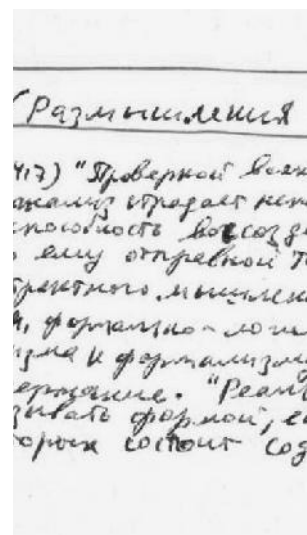 (Размышления
417) "Проверкой всяк
анализ страдает неп
способность воссозда
ему отправной т
трактного мышлен
формально-логи
изма и формализм
ержание. "Реаль
зывать формой, е
торых состоит сод